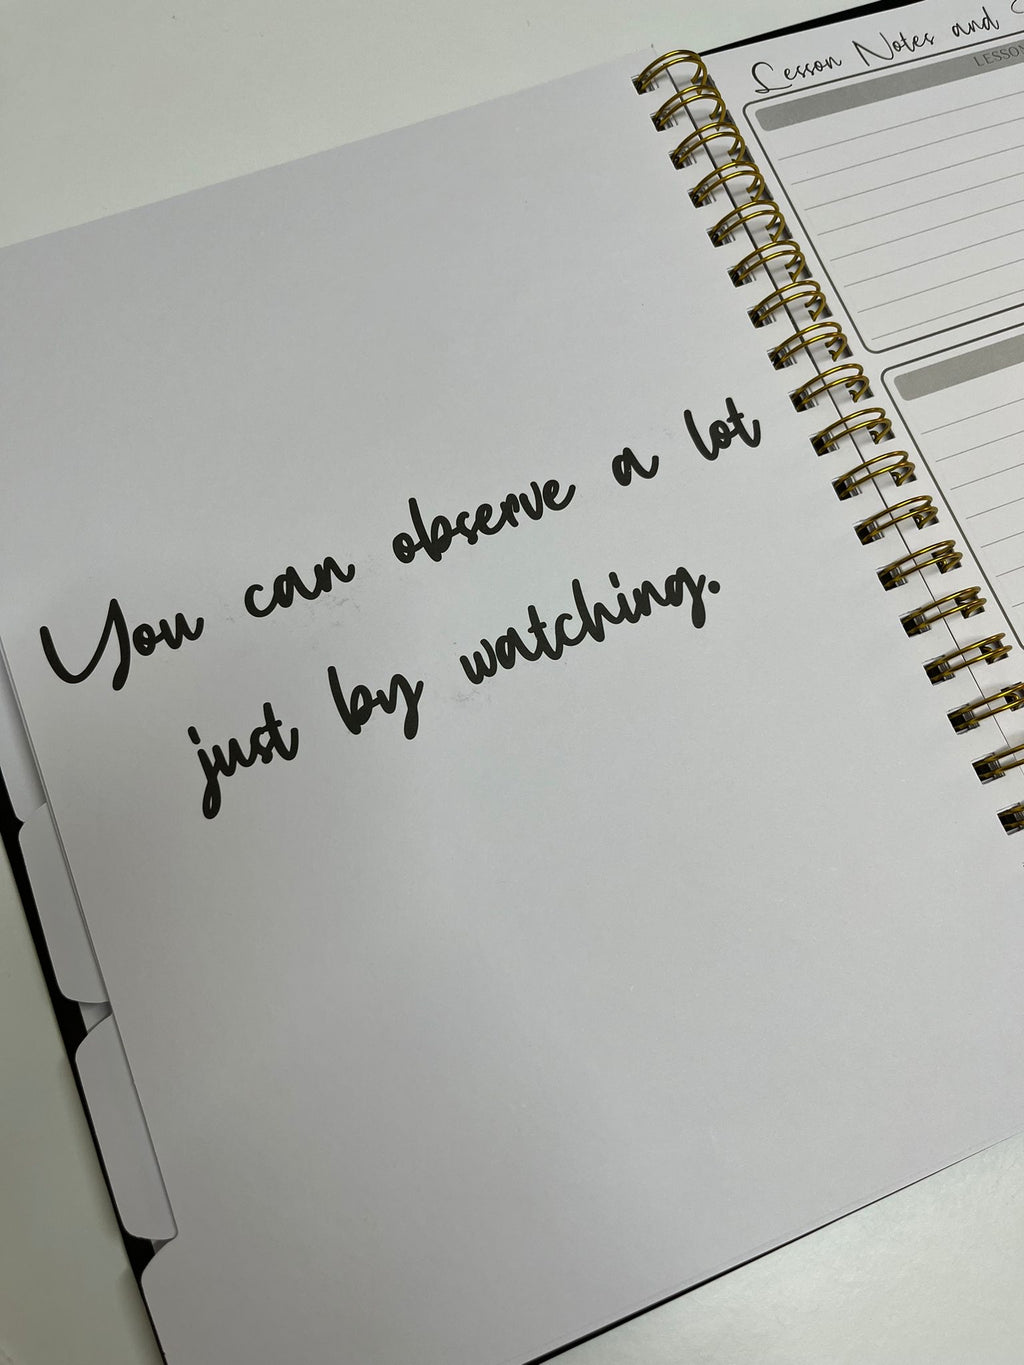 You can observe a lot
just by watching.
Lesson Notes and
LESSON